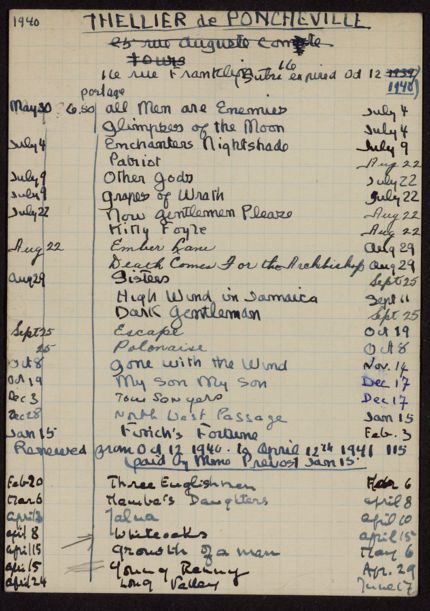 1940 THELLIER de PONCHEVILLE
25 rue Auguste Comte
Tours
16 rue Franklin, Subs expired Oct 12 1939 1940
postage
May 30 6.50 All Men are Enemies July 4
Glimpses of the Moon July 4
July 4 Enchanters Nightshade July 9
Patriot Aug 22
July 9 Other Gods July 22
July 9 Grapes of Wrath July 22
July 22 Now Gentlemen Please Aug 22
Kitty Foyle Aug 22
Aug 22 Ember Lane Aug 29
Death Comes For the Archbishop Aug 29
Aug 29 Sisters Sept 25
High Wind in Jamaica Sept 11
Dark Gentleman Sept 25
Sept 25 Escape Oct 19
25 Polonaise Oct 8
Oct 8 Gone with the Wind Nov. 14
Oct 19 My Son My Son Dec 17
Dec 3 Tom Sawyers Dec 17
Dec 28 North West Passage Jan 15
Jan 15 Firich's Fortune Feb. 3
Renewed from Oct 12 1940. to April 12th 1941 115
paid by Mme Prevost Jan 15
Feb 20 Three Englishmen Mar 6
Mar 6 Mamba's Daughters April 8
April 3 Jalna April 10
April 8 Whiteoaks April 15
April 15 Growth of a man May 6
April 15 Young Renny Apr. 29
April 24 Long Valley June 17